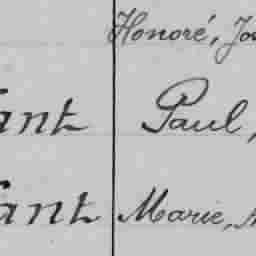 Honoré, Jo
ant Paul,
ant Marie,